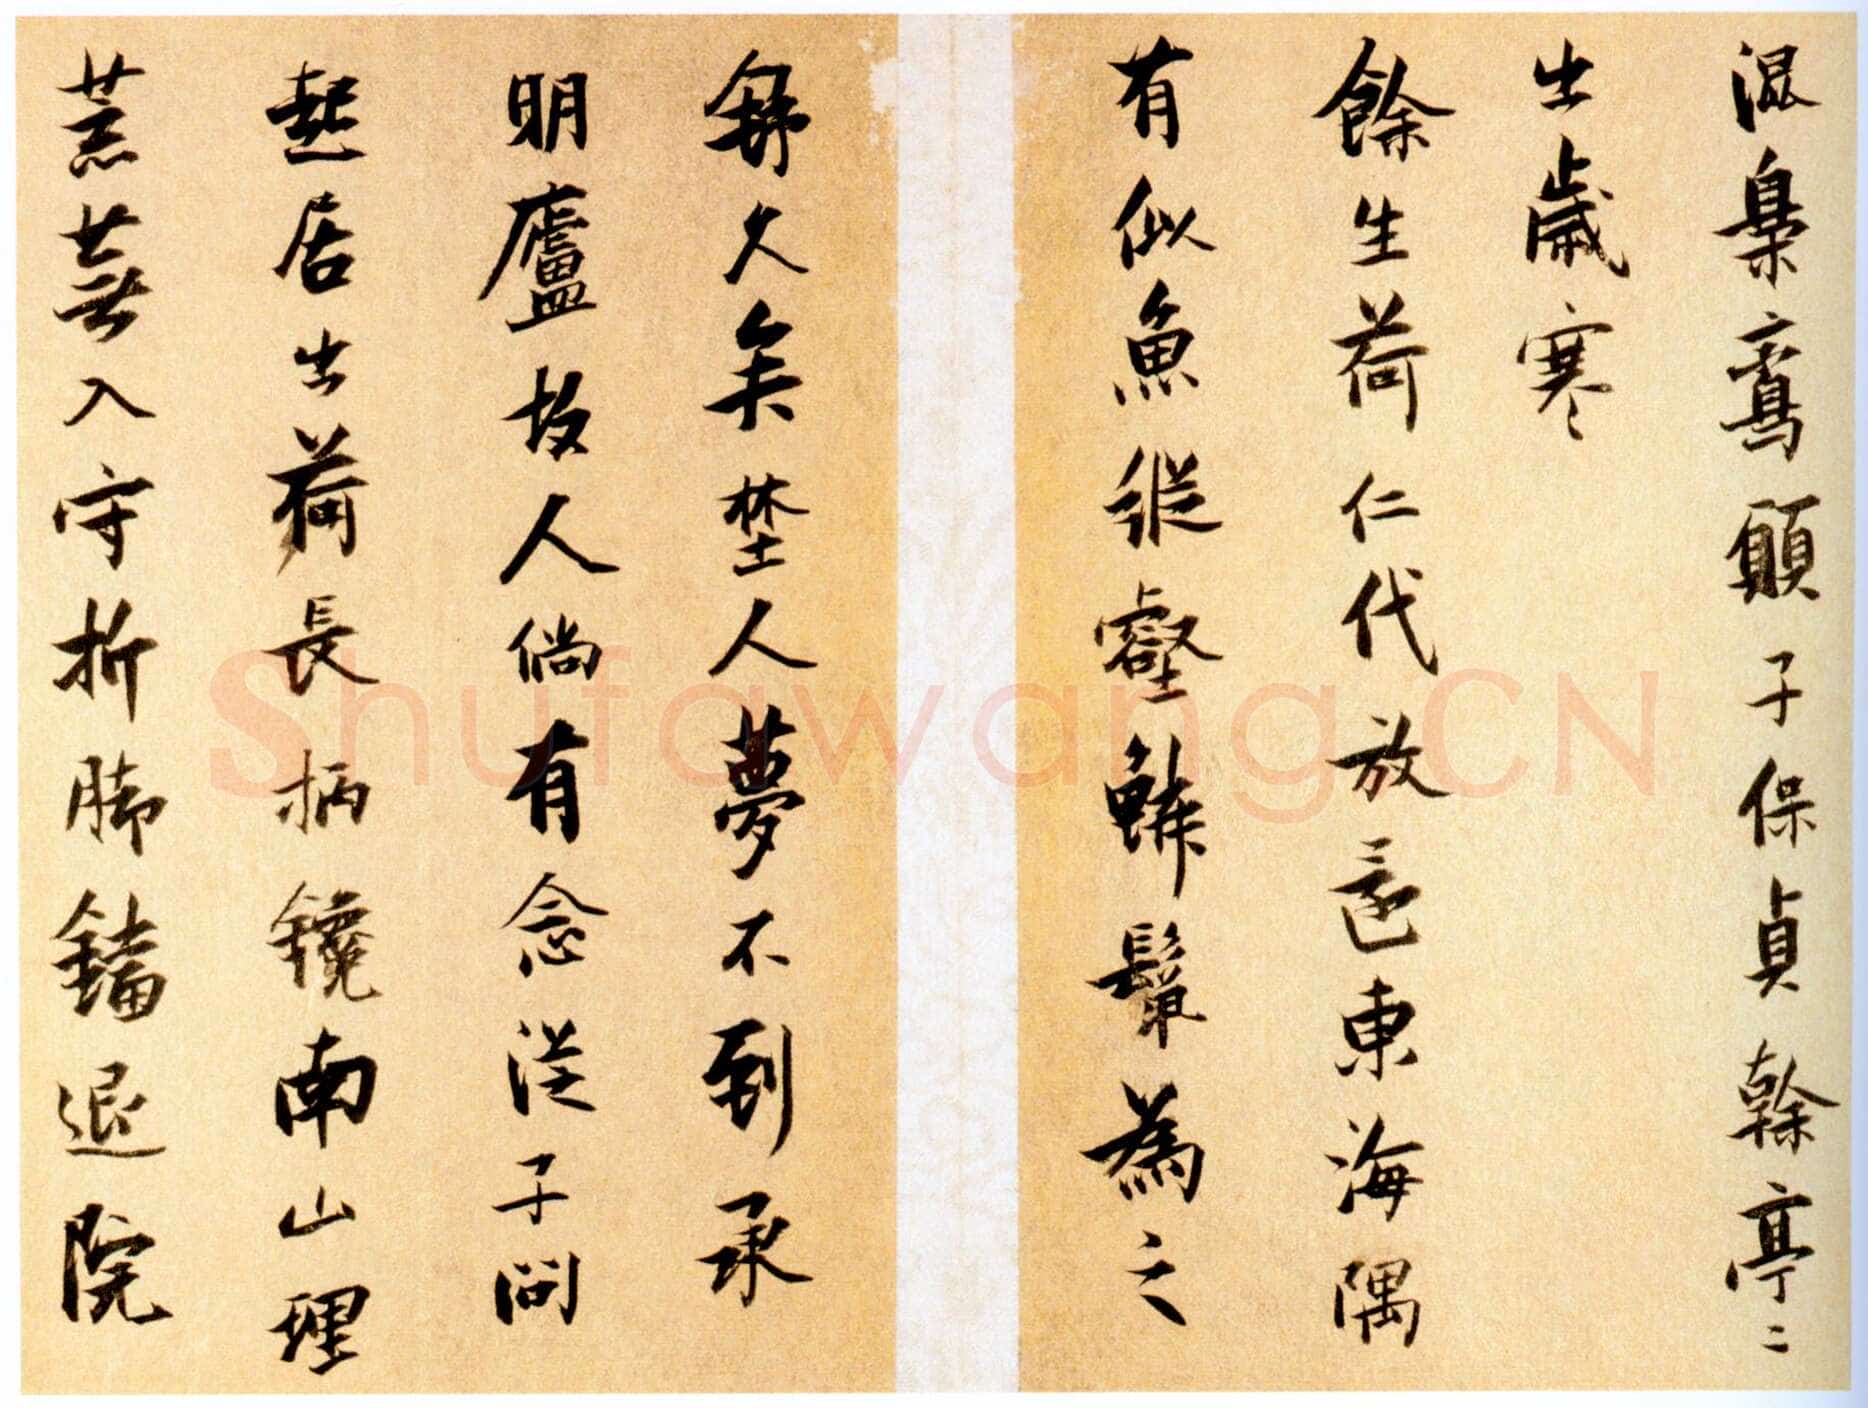 混梟鸞願子保貞榦亭〻
出歲寒
餘生荷仁代放逐東海隅
有似魚縱壑鱗鬐為之
舒久矣埜人夢不到承
明廬故人倘有念從子問
起居出荷長柄鑱南山理
荒蕪入守折腳鐺退院
Shufawang.CN